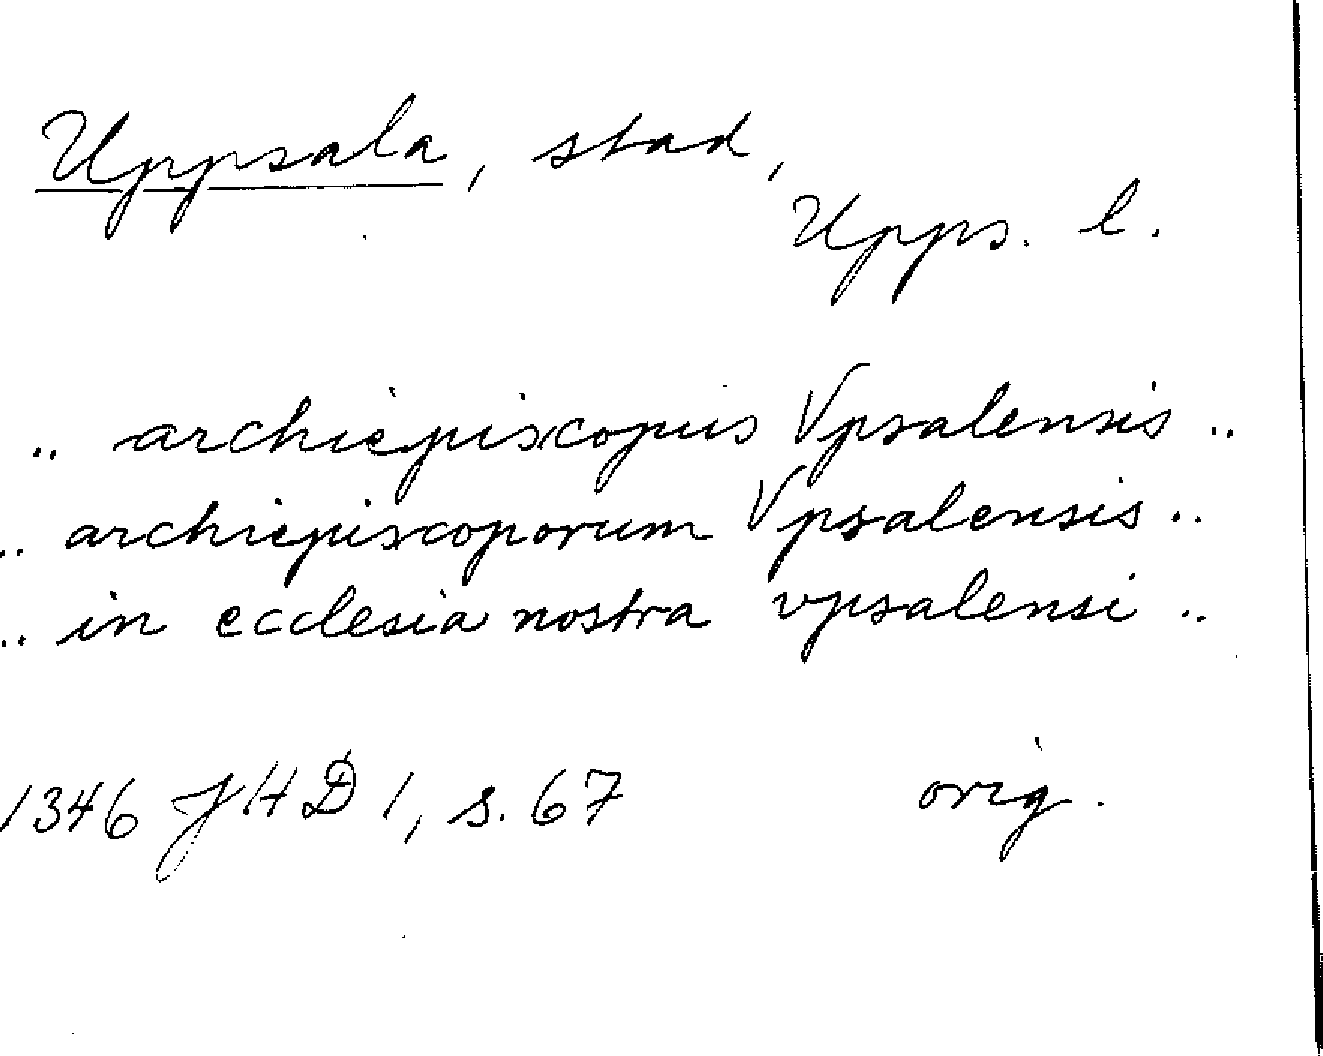 Uppsala, stad,
Upps. l.
.. archiepiscopus Vpsalensis ..
.. archiepiscoporum Vpsalensis ..
.. in ecclesia nostra vpsalensi ..
1346 JHD 1, s. 67 orig.